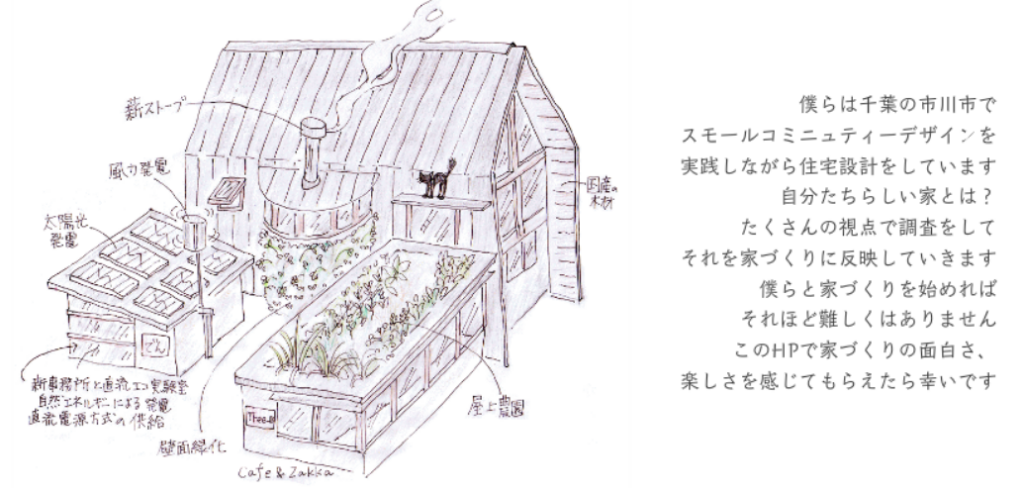 薪ストーブ
風力発電
太陽光
発電
国産の
木材
でん
新事務所と直流エコ実験室
自然エネルギーによる発電
直流電源方式の供給
壁面緑化
屋上農園
Three.B
Cafe & Zakka
僕らは千葉の市川市で
スモールコミニュティーデザインを
実践しながら住宅設計をしています
自分たちらしい家とは？
たくさんの視点で調査をして
それを家づくりに反映していきます
僕らと家づくりを始めれば
それほど難しくはありません
このHPで家づくりの面白さ、
楽しさを感じてもらえたら幸いです